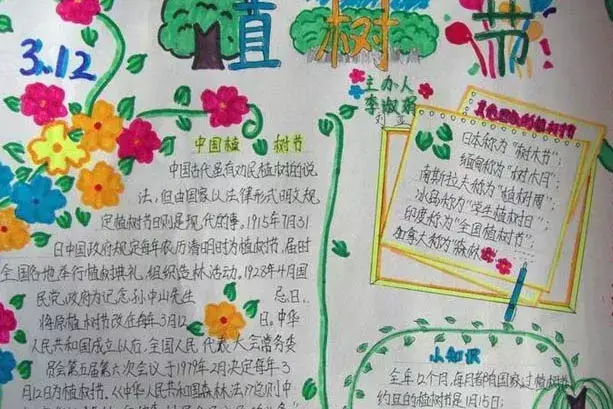 3.12
植树节
主办人
李淑娟
中国植树节
中国古代虽有劝民植树的说
法,但由国家以法律形式明文规
定植树节日则是现代的事。1915年7月31
日中国政府规定每年农历清明时为植树节,届时
全国各地举行植树典礼,组织造林活动。1928年4月国
民党政府为纪念孙中山先生 忌日,
将原植树节改在每年3月12 日。中华
人民共和国成立以后,全国人民代表大会常务委
员会第五届第六次会议于1979年2月决定每年3
月12日为植树节。《中华人民共和国森林法》总则中
的植树节
日本称为“树木节”;
缅甸称为“树木月”;
南斯拉夫称为“植树周”;
冰岛称为“学生植树日”;
印度称为“全国植树节”;
加拿大称为“森林
小知识
全年12个月,每月都有国家过植树节
约旦的植树节是1月15日;